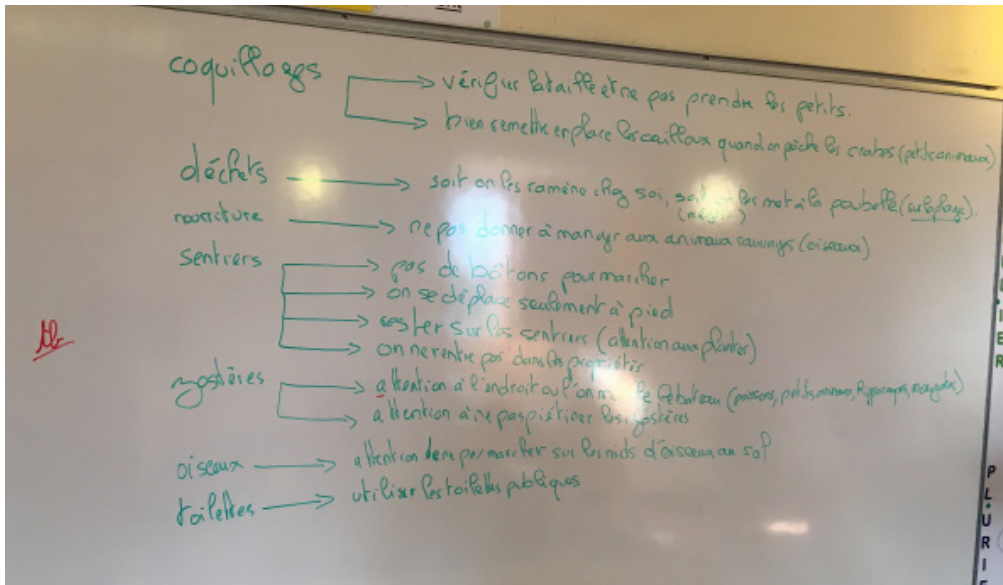 coquillages → vérifier la taille et ne pas prendre les petits.
→ bien remettre en place les cailloux quand on pêche les crabes (petits animaux)
déchets → soit on les ramène chez soi, soit on les met à la poubelle (sur la plage).
nourriture → ne pas donner à manger aux animaux sauvages (oiseaux)
sentiers → pas de bâtons pour marcher
→ on se déplace seulement à pied
→ rester sur les sentiers (attention aux plantes)
→ on ne rentre pas dans les propriétés
zostères → attention à l'endroit où l'on le bateau (poissons, petits animaux, hippocampes,
→ attention à ne pas piétiner les zostères
oiseaux → attention de ne pas marcher sur les nids d'oiseaux au sol
toilettes → utiliser les toilettes publiques
I
E
R
P
L
U
R
I